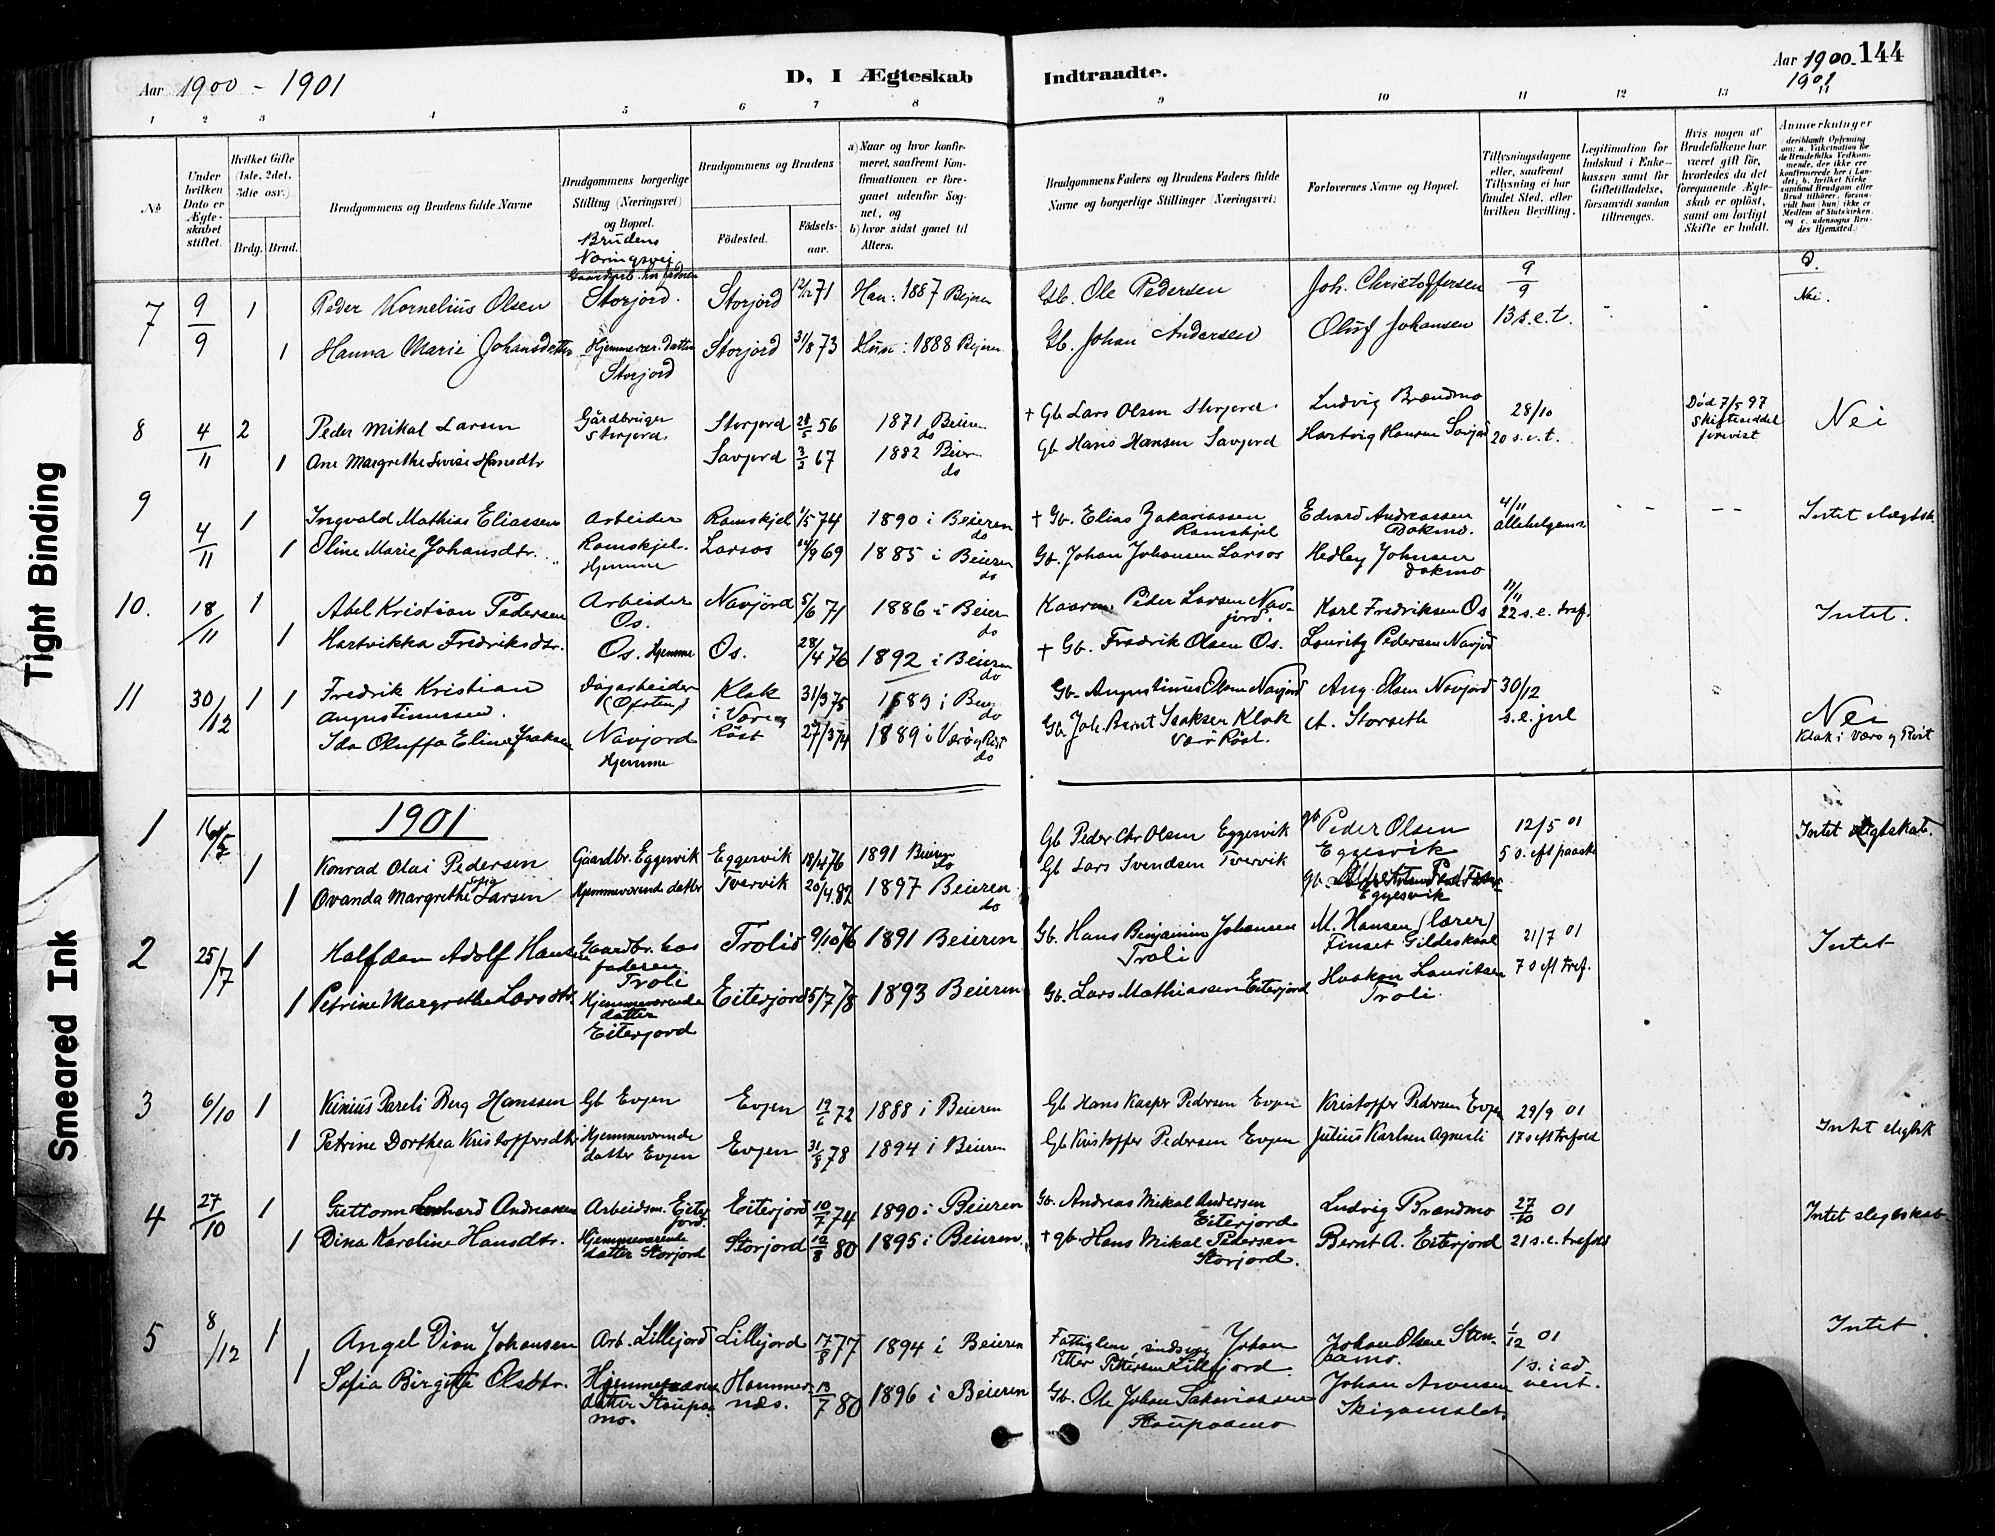 Tight Binding
Smeared Ink
Aar 1900 - 1901
D, I Ægteskab
Indtraadte.
Aar 1900-
1901
144
1 2 3 4 5 6 7 8 9 10 11 12 13
No
Under hvilken Dato er Ægteskabet stiftet.
Hvilket Gifte (1ste, 2det, 3die osv.)
Brdg. Brud.
Brudgommens og Brudens fulde Navne
Brudgommens borgerlige Stilling (Næringsvei) og Bopæl.
Brudens Næringsvei
Brudgommens og Brudens
Födested. Födselsaar.
a) Naar og hvor konfirmeret, saafremt Konfirmationen er foregaaet udenfor Sognet, og
b) hvor sidst gaaet til Alters.
Brudgommens Faders og Brudens Faders fulde Navne og borgerlige Stillinger (Næringsvei)
Forlovernes Navne og Bopæl.
Tillysningsdagene eller, saafremt Tillysning ei har fundet Sted, efter hvilken Bevilling.
Legitimation for Indskud i Enkekassen samt for Giftetilladelse, forsaavidt saadan tiltrænges.
Hvis nogen af Brudefolkene har været gift för, hvorledes da det foregaaende Ægteskab er oplöst, samt om lovligt Skifte er holdt.
Anmærkninger
7 9/9 1 Peder Kornelius Olsen Storjord. Storjord 12/12 71 Han: 1887 Bejern Gb. Ole Pedersen Joh. Christoffersen 9/9 Nei.
1 Hanna Marie Johansdatter Hjemmevær. datter Storjord Storjord 31/8 73 Hun: 1888 Bejern Gb. Johan Andersen Oluf Johansen 13 s.e.t.
8 4/11 2 Peder Mikal Larsen Gårdbruger Storjord Storjord 28/5 56 1871 Beiern do + Gb Lars Olsen Storjord Ludvig Brændmo 28/10 Död 7/5 97 Skifteseddel forevist Nei
1 Ane Margrethe Lovise Hansdtr Savjord 3/3 67 1882 Beiern do Gb Hans Hansen Savjord Hartvig Hansen Savjord 20 s.e.t.
9 4/11 1 Ingvald Mathias Eliassen Arbeider Ramskjel. Ramskjel 1/5 74 1890 i Beieren do + Gb. Elias Zakariassen Ramskjel Edvard Andreassen Dokmo. 4/11 allehelgensd. Intet slægtsk.
1 Oline Marie Johansdtr. Hjemme Larsos 69 1885 i Beieren do Gb. Johan Johansen Larsos Hedley Johnsen Dokmo
10. 18/11 1 Abel Kristian Pedersen Arbeider Os. Navjord 5/6 71 1886 i Beier do Kaarm. Peder Larsen Navjord. Karl Fredriksen Os 11/11 22 s.e. tref. Intet.
1 Hartvikka Fredriksdtr. Os. Hjemme Os. 28/4 76 1892 i Beieren do + Gb. Fredrik Olsen Os. Lauritz Pedersen Navjord
11 30/12 1 1 Fredrik Kristian Augustinussen. Dagarbeider (Ofoten) Navjord Klok i Værøy Røst 31/3 75 1889 i Beiern do Gb. Augustinus Olsen Navjord Aug. Olsen Navjord 30/12 s.e. jul Nei
Ida Oluffa Eline Isaksen Hjemme 27/3 74 1889 i Værö og Röst do Gb. Joh. Bernt Isaksen Klok Værö Röst. A. Storseth Klok i Værö og Röst
1901
1 16/5 1 Konrad Olai Pedersen Gaardbr. Eggesvik Eggesvik 18/4 76 1891 Beieren do Gb Peder Chr Olsen Eggesvik gb Peder Olsen Eggesvik 12/5 01 Intet slegtskab.
1 Ovanda Margrethe Sofie Larsen Hjemmeværende datter Tvervik 20/4 82 1897 Beieren do Gb Lars Svendsen Tvervik Eggesvik 5 s. eft paaske
2 25/7 1 Halfdan Adolf Hansen Gaardbr. hos faderen Troli Trolid 9/10 76 1891 Beieren Gb. Hans Benjamin Johansen Troli M. Hansen (lærer) Finset Gildeskaal 21/7 01 Intet
1 Petrine Margrethe Larsdtr. Hjemmeværende datter Eiterjord Eiterjord 5/7 78 1893 Beieren Gb. Lars Mathiassen Eiterjord Haakon Lauritsen Troli. 7 s eft tref.
3 6/10 1 Kinius Pareli Berg Hanssen Gb Evjen Evjen 19/6 72 1888 i Beieren Gb Hans Kasper Pedersen Evjen Kristoffer Pedersen Evjen 29/9 01 Intet slegtsk
1 Petrine Dorthea Kristoffersdtr Hjemmeværende datter Evjen Evjen 31/8 78 1894 i Beieren Gb Kristoffer Pedersen Evjen Julius Karlsen Agnesli 17 s eft trefold
4 27/10 1 Guttorm Lenhard Andreassen Arbeidsm. Eiterjord. Eiterjord 10/7 74 1890 i Beieren Gb. Andreas Mikal Andersen Eiterjord Ludvig Brændmo 27/10 01 Intet slegtskab
1 Dina Karoline Hansdtr. Hjemmeværende datter Storjord Storjord 12/8 80 1895 i Beieren. + gb. Hans Mikal Pedersen Storjord. Bernt A. Eiterjord 21 s.e. trefold
5 8/12 1 Angel Dion Johansen Arb. Lillejord Lillejord 17/8 77 1894 i Beieren Fattiglem, sindssyg Johan Petter Pettersen Lillejord. Johan Olsen Stenaamo. 1/12 01 Intet.
1 Sofia Birgitte Olsdtr. Hjemmeværende datter Staupaamo. Hammernæs. 13/7 80 1896 i Beieren Gb. Ole Johan Sakariassen Staupaamo Johan Arensen 1 s. i advent.